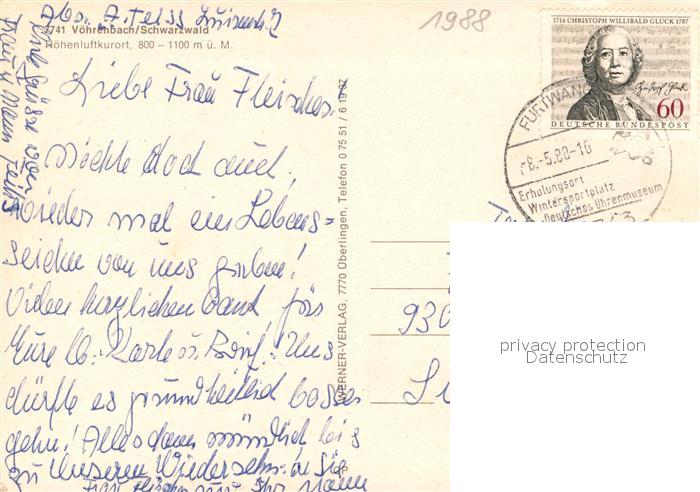 Abs. A. Feiss
7741 Vöhrenbach/Schwarzwald
Höhenluftkurort, 800 – 1100 m ü. M.
Liebe Frau Fleischer.
Möchte doch auch,
wieder mal ein Lebens=
zeichen von uns geben!
Vielen herzlichen Dank fürs
Eure lb. Karte u. Brief. Uns
dürfte es gesundheitlich besser
gehn! Alles dann mündlich bis
zu unseren Wiedersehn in
Frau
Ihr Mann
Viele Grüsse von
Frau u. Mann Feiss
WERNER-VERLAG, 7770 Überlingen, Telefon 0 75 51 / 6 19 87
1988
1714 CHRISTOPH WILLIBALD GLUCK 1787
60
DEUTSCHE BUNDESPOST
FURTWANG
-6.-5.88-10
Erholungsort
Wintersportplatz
Deutsches Uhrenmuseum
930
privacy protection
Datenschutz